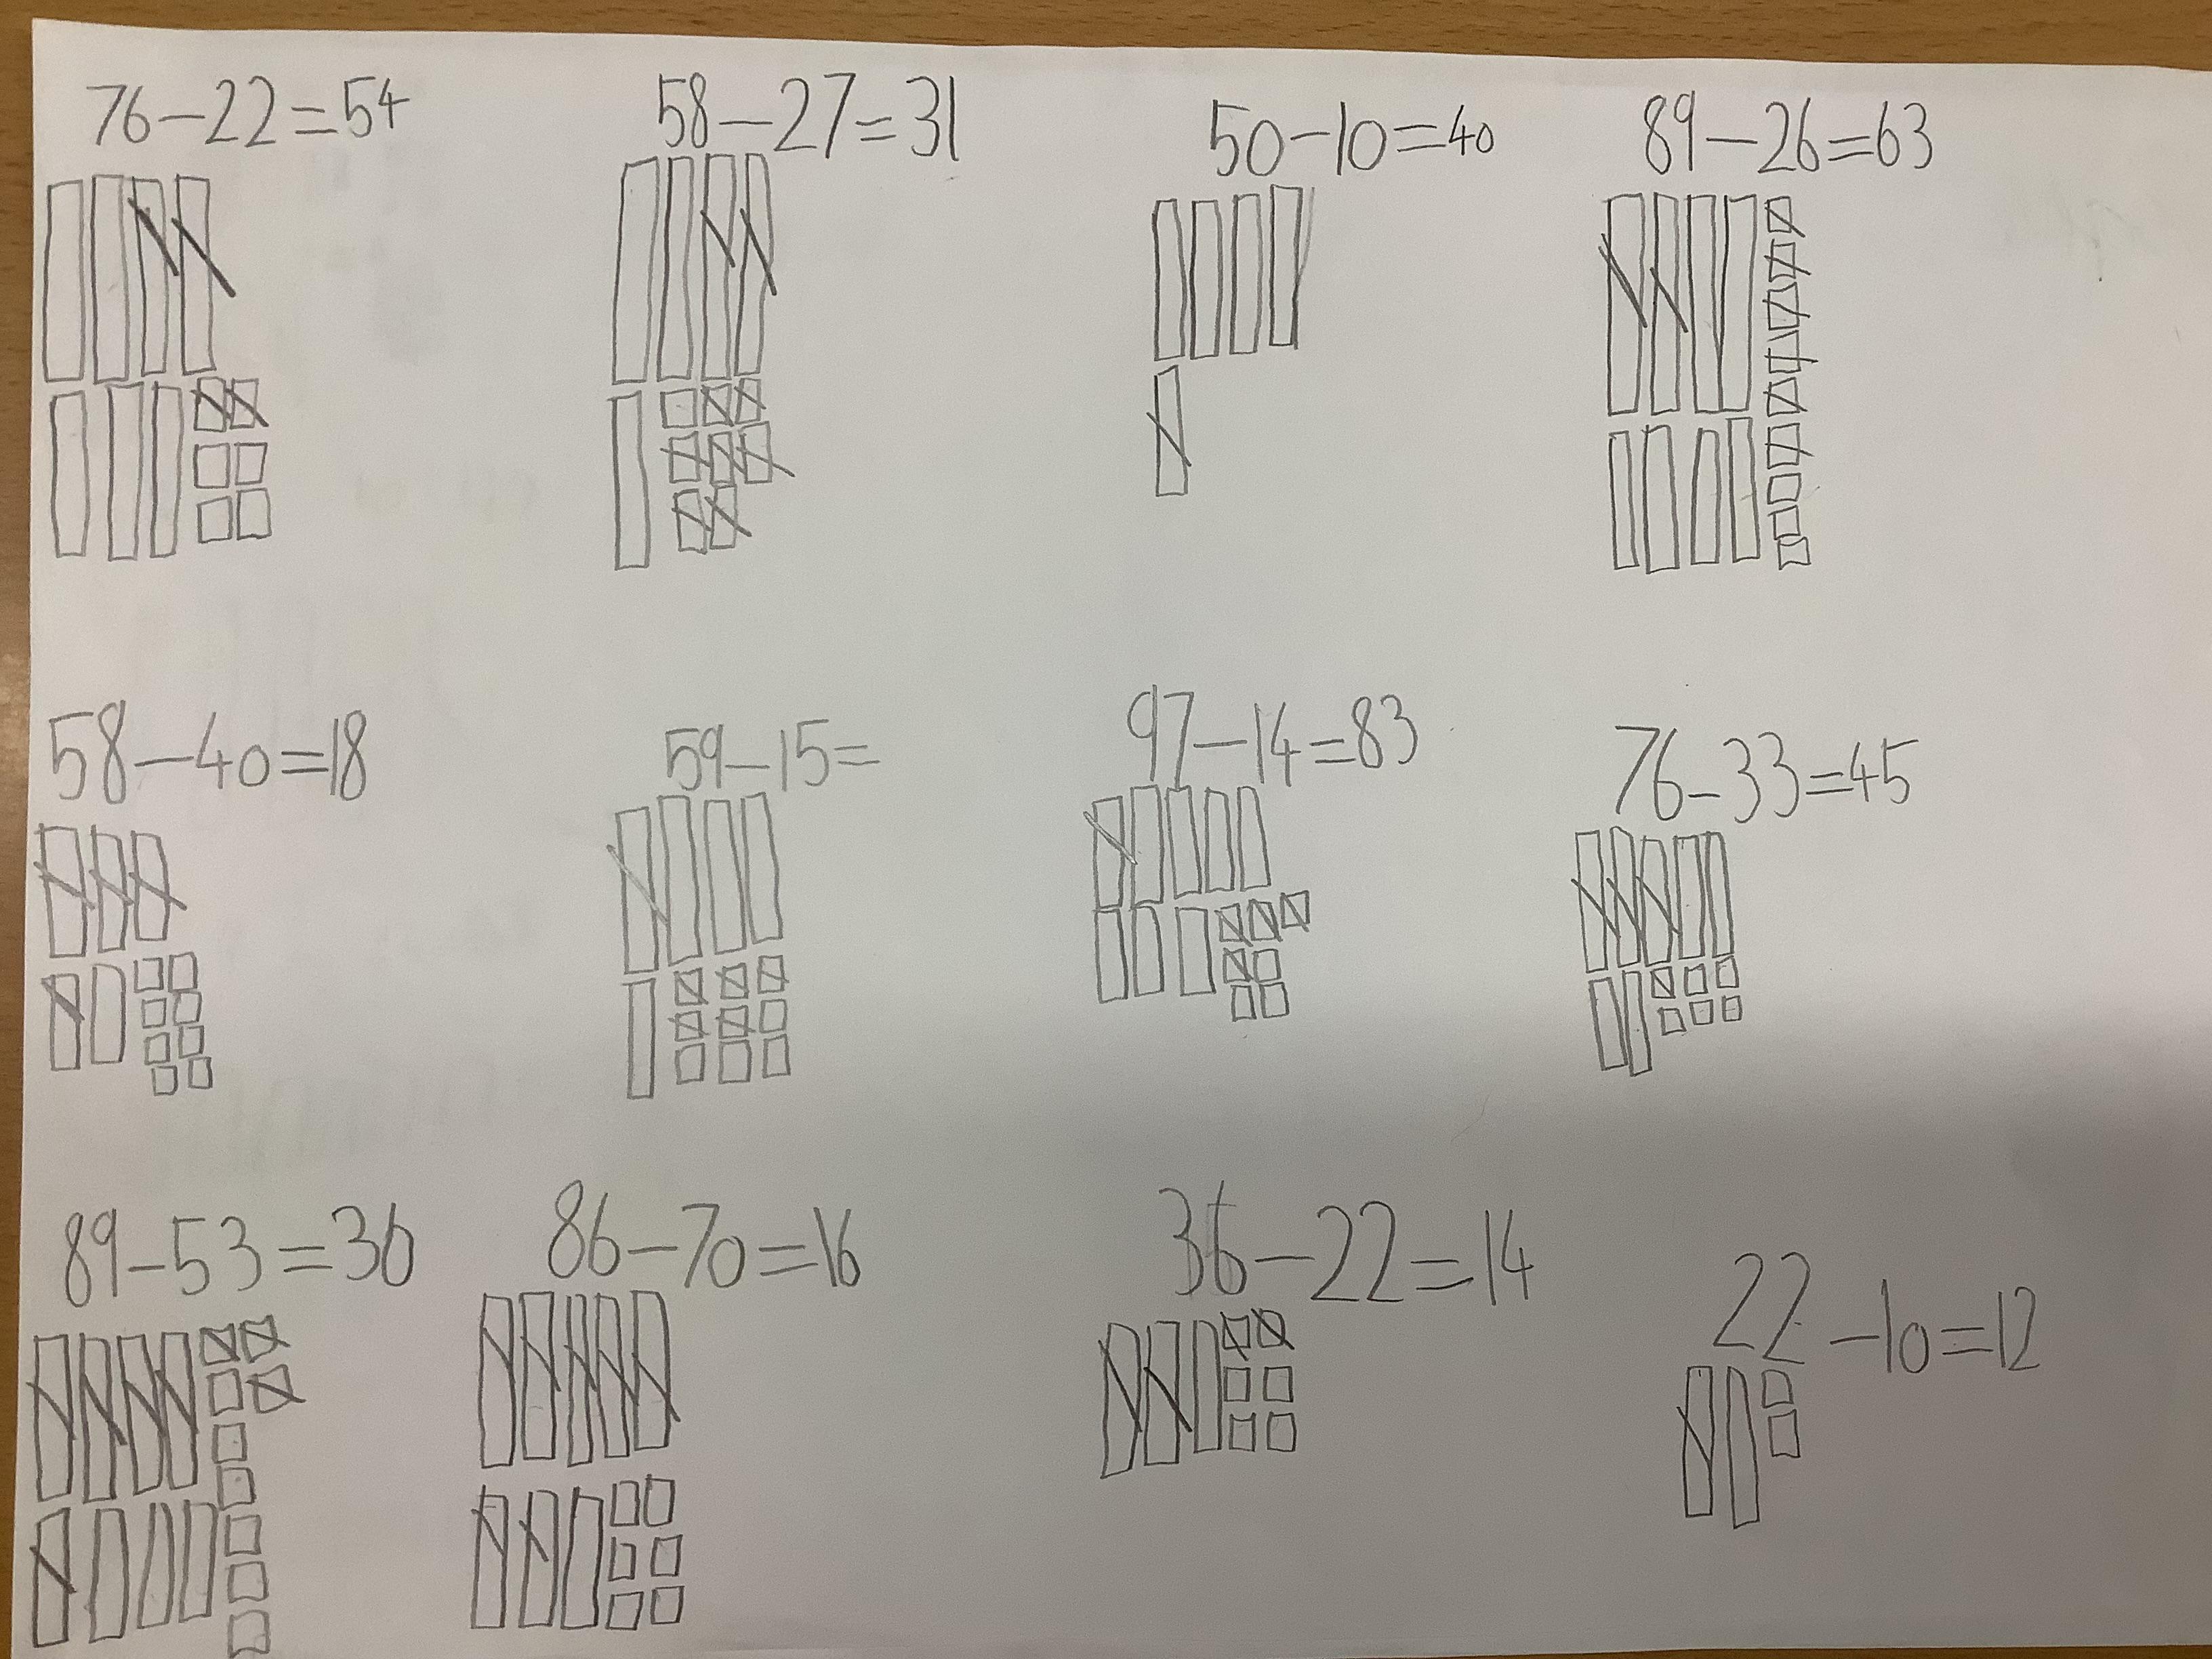 76-22=54
58-27=31
50-10=40
89-26=63
58-40=18
59-15=
97-14=83
76-33=45
89-53=36
86-70=16
36-22=14
22-10=12